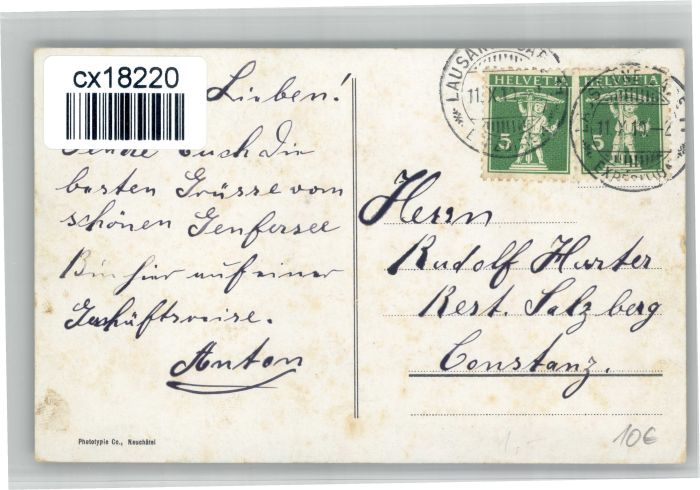 cx18220
Lieben!
Sende Euch die
besten Grüsse vom
schönen Genfersee
Bin hier auf einer
Geschäftsreise.
Anton
Phototypie Co., Neuchâtel
HELVETIA
5
HELVETIA
5
LAUSANNE
Herrn
Rudolf Harter
Rest. Salzberg
Constanz.
10€